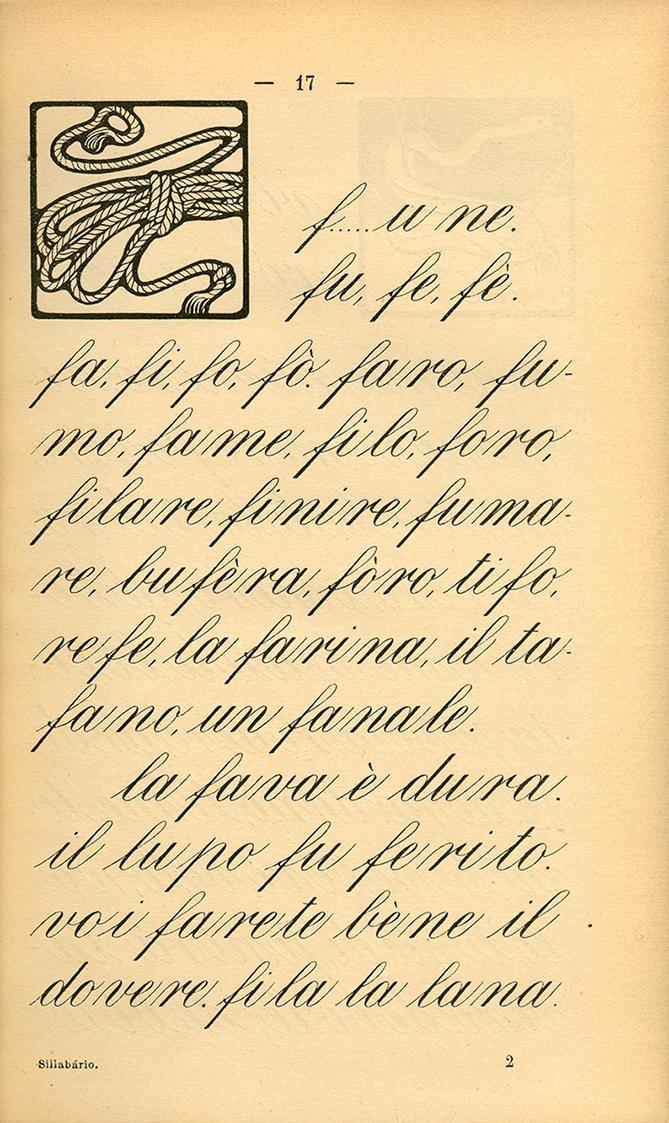 — 17 —
f.....u ne.
fu, fe, fè.
fa, fi, fo, fò. faro, fu-
mo, fame, filo, foro,
filare, finire, fuma-
re, bufèra, fòro, tifo,
refe, la farina, il ta-
fano, un fanale.
la fava è dura.
il lupo fu ferito.
voi farete bène il
dovere. fila la lana.
Sillabário. 2